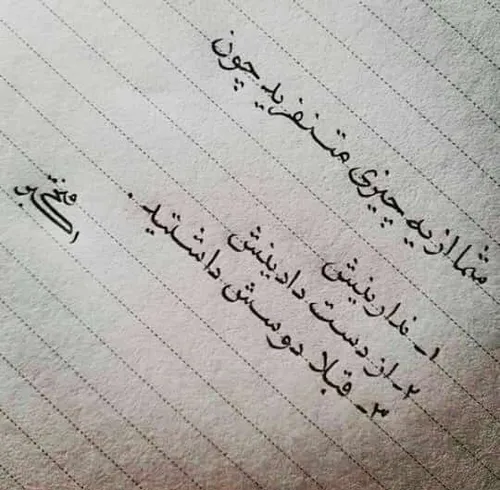 شما از یه چیزی متنفرید چون
۱- ندارینش
۲- از دست دادینش
۳- قبلا دوسش داشتید.